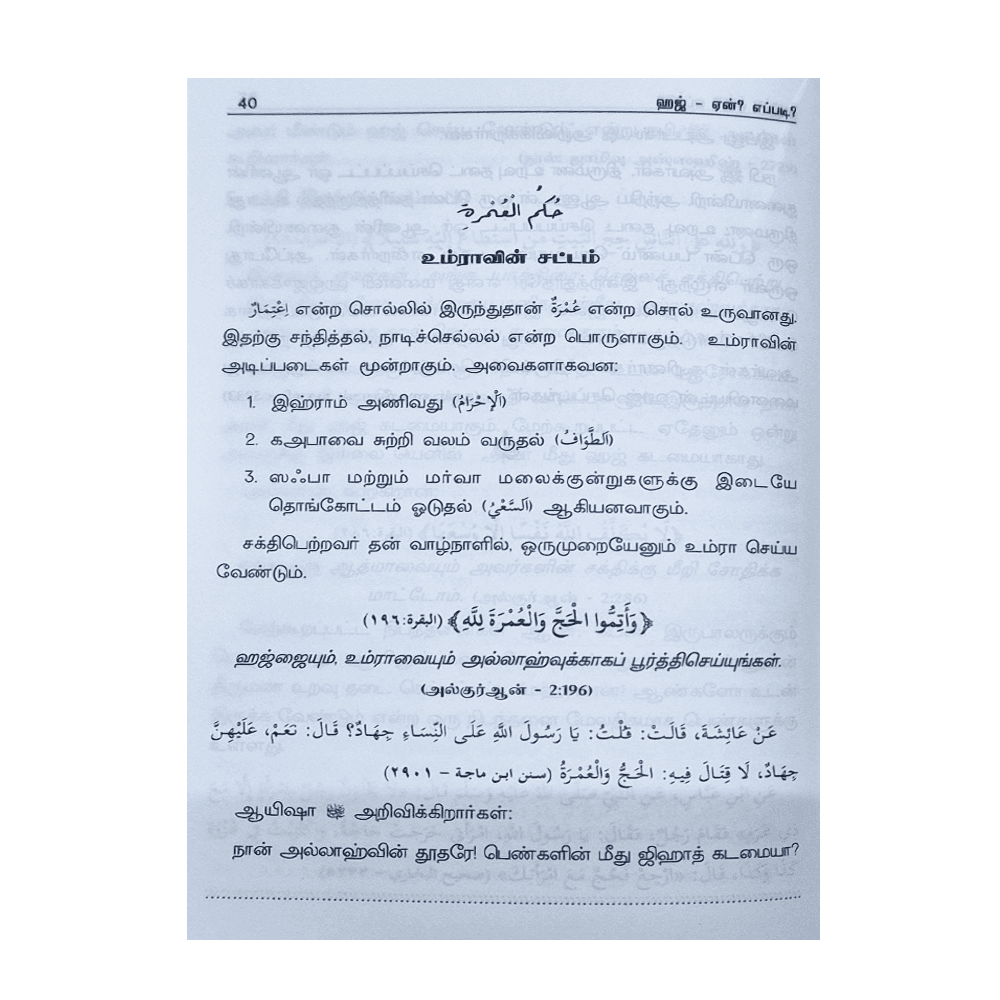 40
ஹஜ் – ஏன்? எப்படி?
حُكْمُ الْعُمْرَةِ
உம்ராவின் சட்டம்
اِعْتِمَارٌ என்ற சொல்லில் இருந்துதான் عُمْرَةٌ என்ற சொல் உருவானது.
இதற்கு சந்தித்தல், நாடிச்செல்லல் என்ற பொருளாகும். உம்ராவின்
அடிப்படைகள் மூன்றாகும். அவைகளாகவன:
1. இஹ்ராம் அணிவது (اَلْإِحْرَامُ)
2. கஅபாவை சுற்றி வலம் வருதல் (اَلطَّوَافُ)
3. ஸஃபா மற்றும் மர்வா மலைக்குன்றுகளுக்கு இடையே
தொங்கோட்டம் ஓடுதல் (اَلسَّعْيُ) ஆகியனவாகும்.
சக்திபெற்றவர் தன் வாழ்நாளில், ஒருமுறையேனும் உம்ரா செய்ய
வேண்டும்.
﴿وَأَتِمُّوا الْحَجَّ وَالْعُمْرَةَ لِلَّهِ﴾ (البقرة:١٩٦)
ஹஜ்ஜையும், உம்ராவையும் அல்லாஹ்வுக்காகப் பூர்த்திசெய்யுங்கள்.
(அல்குர்ஆன் – 2:196)
عَنْ عَائِشَةَ، قَالَتْ: قُلْتُ: يَا رَسُولَ اللَّهِ عَلَى النِّسَاءِ جِهَادٌ؟ قَالَ: نَعَمْ، عَلَيْهِنَّ
جِهَادٌ، لَا قِتَالَ فِيهِ: الْحَجُّ وَالْعُمْرَةُ (سنن ابن ماجة – ٢٩٠١)
ஆயிஷா அறிவிக்கிறார்கள்:
நான் அல்லாஹ்வின் தூதரே! பெண்களின் மீது ஜிஹாத் கடமையா?